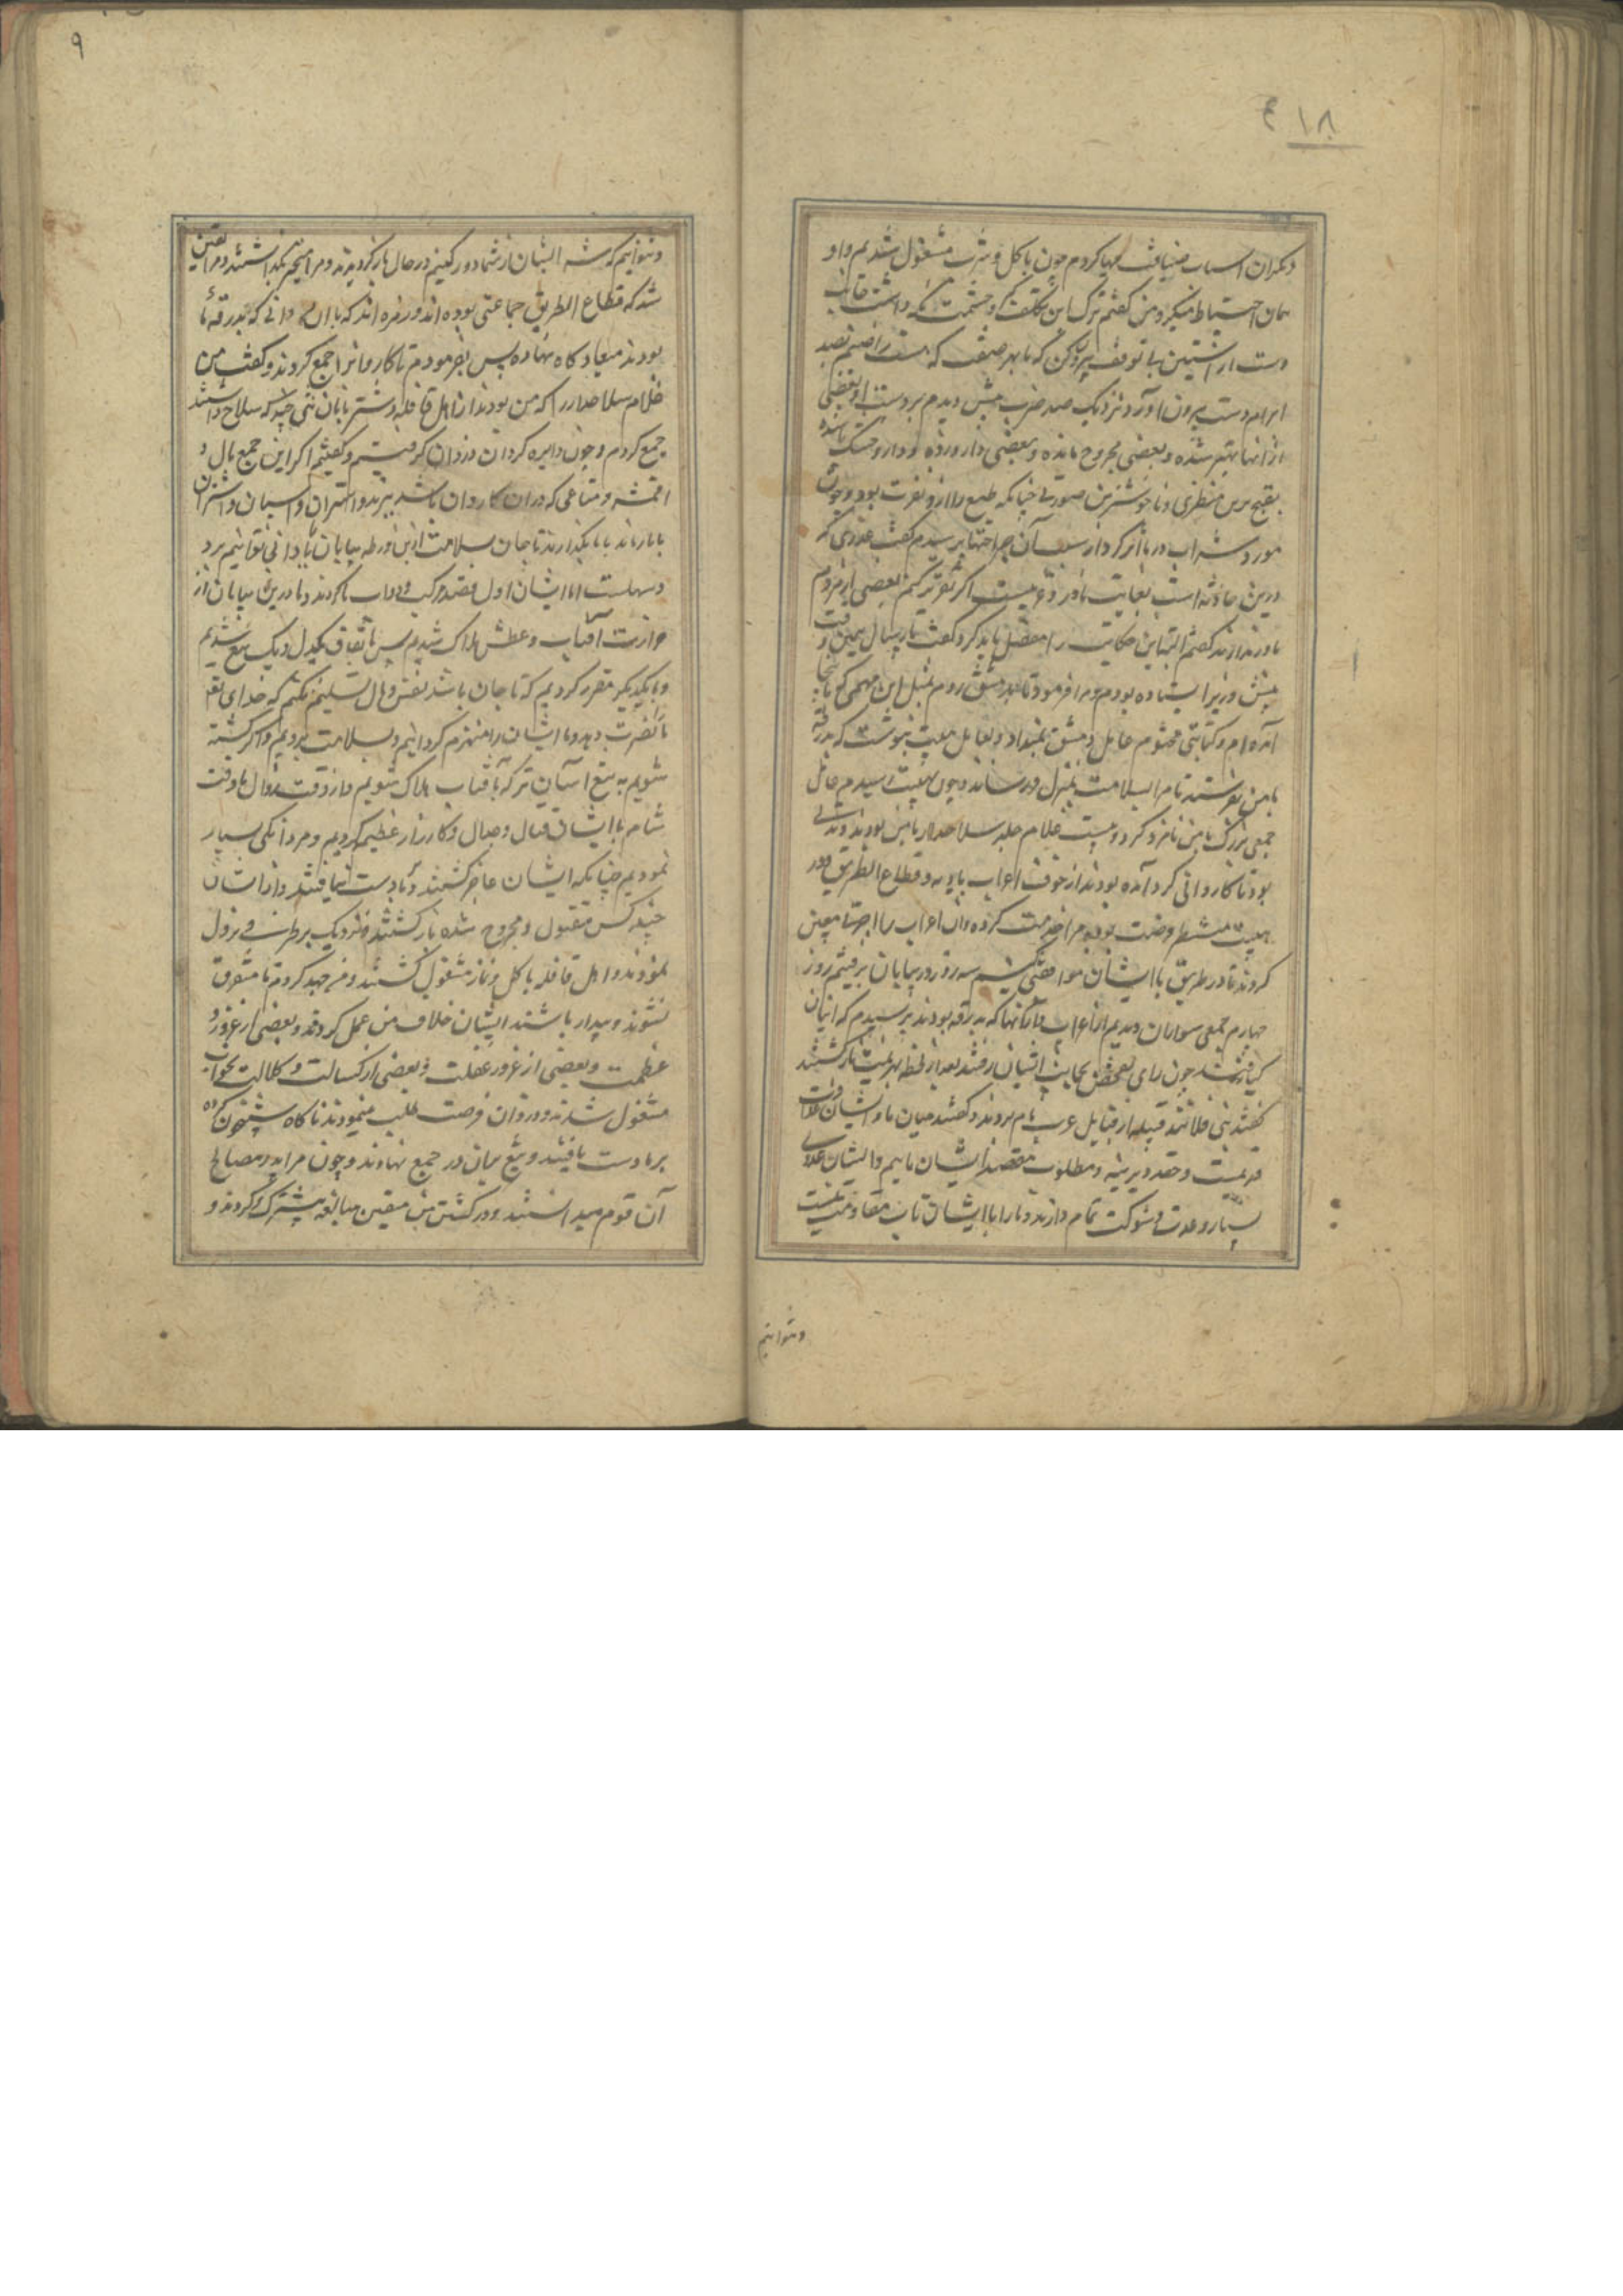 ۱۸ ع
دیکران اسباب ضیافت مهیا کردم چون باکل و شرب مشغول شدیم و او
همان احتیاط میکرد من کفتم ترک این تکلف کو و حشمت نکه داشت
دست از آستین بی توقف بیرون کن که ما بهر صفت که هست راضیم بصد
ابرام دست بیرون آورد نزدیک صد ضرب بیش دیدم بر دست او بعضی
از آنها بهتر شده و بعضی مجروح مانده و بعضی دارو زده و دارو خشک شده
بقبیح ترین منظری و ناخوشترین صورتی چنانکه طبع را ازو نفرت بود و چون
دور شراب در ما اثر کرد از سبب آن جراحتها پرسیدم کفت عذری که
درین حادثه است بغایت نادر و غریبست اکر تقریر کنم بعضی از مردم
باور ندارند کفتم البته این حکایت را مفصل باید کرد کفت پارسال همین وقت
پیش وزیر ایستاده بودم و مرا فرمود تا بدمشق روم بمثل این مهمی که باینجا
آمده ام و کتابتی مختوم بعامل دمشق بمن داد و بعامل هیت نوشت که بدرقه
با من بفرستد تا مرا بسلامت بمنزل رساند و چون بهیت رسیدم عامل
جمعی بزرک با من نامزد کرد و بیست غلام جلد سلاحدار با من بودند
بود تا کاروانی کرد آمده بودند از خوف اعراب بادیه و قطاع الطریق در
هیت منتظر فرصت بودند مرا خدمت کرده و آن اعراب را اجرتی معین
کردند تا در طریق با ایشان موافقت کنیم سه روز در بیابان برفتیم روز
چهارم جمعی سواران دیدیم از اعراب و از آنها که بدرقه بودند پرسیدم که اینان
کیانند چون برای تفحص بجانب ایشان رفتند بعد از لحظه بهزیمت بازکشتند
کفتند بنی فلانند قبیله از قبایل عرب نام بردند و کفتند میان ما و ایشان عداوت
قدیمست و حقد دیرینه و مطلوب و مقصد ایشان ماییم و ایشان عددی
بسیار و عدت و شوکت تمام دارند و ما را با ایشان تاب مقاومت نیست
و نتوانیم
۹
و نتوانیم که شر ایشان از شما دور کنیم در حال بازکردیدند و مرا متحیر بکذاشتند و مرا یقین
شد که قطاع الطریق جماعتی بوده اند و زمره اند که با آن که بدرقه ما
بودند میعادکاه نهاده پس بفرمودم تا کاروان را جمع کردند و کفتند من
غلام سلاحدار را که من بودند از اهل قافله و شتربانان تنی چند که سلاح داشتند
جمع کردم و چون دایره کرد آن دزدان کرفتیم و کفتیم اکر این جمع مال و
اقمشه و متاعی که در آن کاروان باشد ببرند و استران و اسبان و اشتران
با ما بکذارند تا جان بسلامت از این ورطه بیابان بآبادانی توانیم برد
سهلست اما ایشان اول قصد مرکب و دواب ما کردند و ما درین بیابان از
حرارت آفتاب و عطش هلاک شدیم پس باتفاق یکدل و یک تیغ شدیم
و با یکدیکر مقرر کردیم که تا جان باشد نفس و مال تسلیم نکنیم که خدای تعالی
ما را نصرت دهد و ما ایشان را منهزم کردانیم و بسلامت برویم و اکر کشته
شویم به تیغ آسان تر که بآفتاب هلاک شویم و از وقت زوال تا وقت
شام با ایشان قتال و جدال و کارزار عظیم کردیم و مردانکی بسیار
نمودیم چنانکه ایشان عاجز کشتند و بما دست نیافتند و از ایشان
چند کس مقتول و مجروح شده بازکشتند و نزدیک بر طرفی نزول
نمودند و اهل قافله باکل و نماز مشغول کشتند و من جهد کردم تا متفرق
نشوند و بیدار باشند ایشان خلاف من عمل کردند و بعضی از غرور
عظمت و بعضی از غرور غفلت و بعضی از کسالت و کلالت بخواب
مشغول شدند و دزدان فرصت طلب مینمودند ناکاه شبیخون کرده
بر ما دست یافتند و تیغ بران در جمع نهادند و چون مرا مدبر مصالح
آن قوم میدانستند و در کشتن من مبالغه بیشتر کردند و